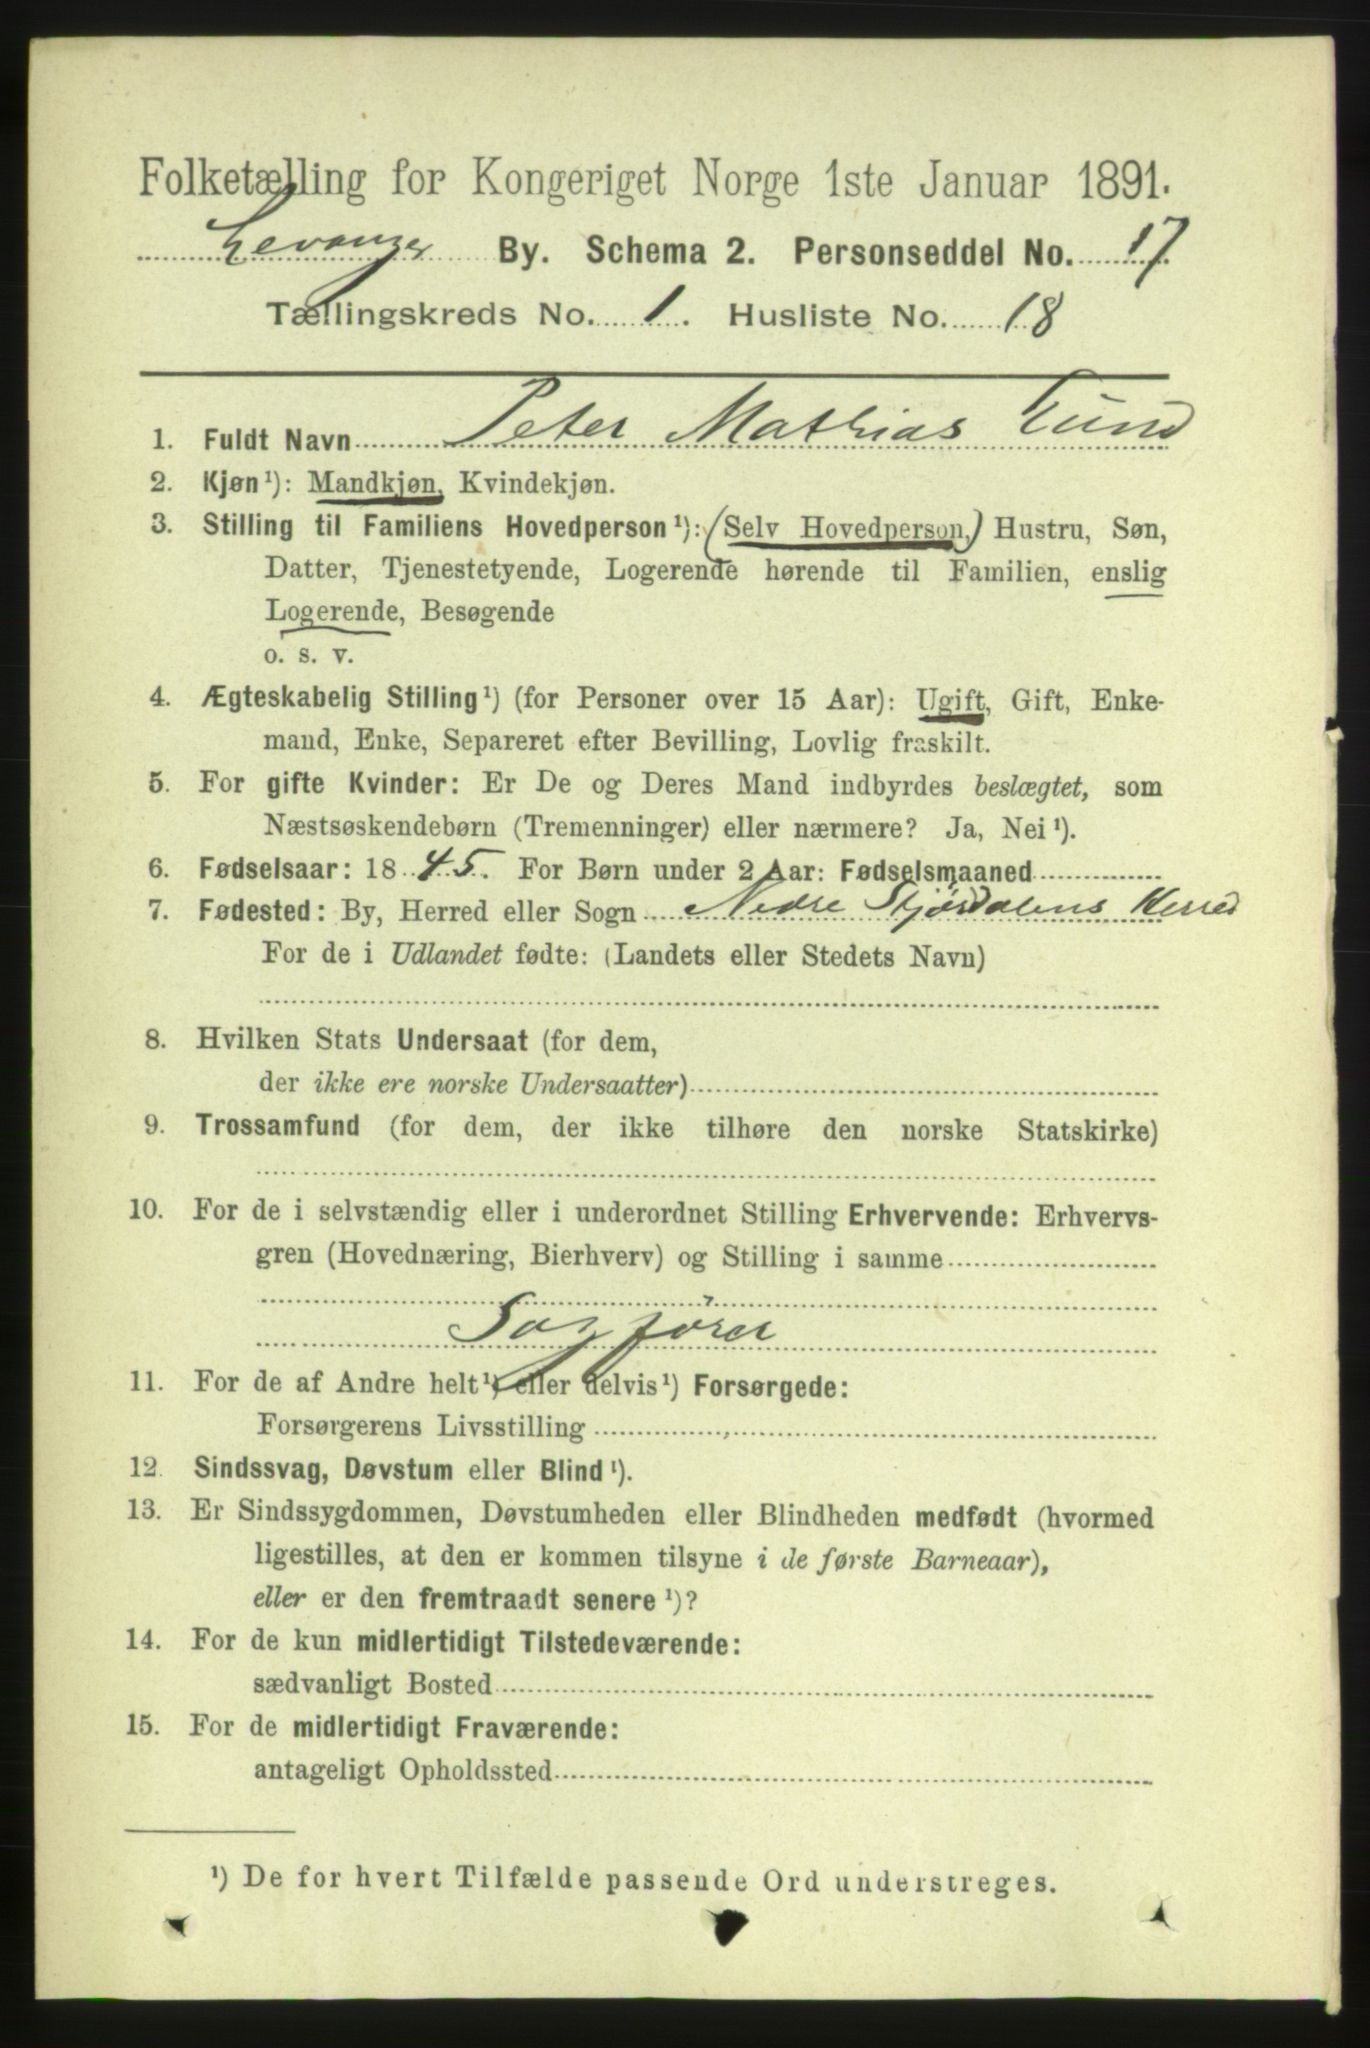 Folketælling for Kongeriget Norge 1ste Januar 1891.
Levanger By. Schema 2. Personseddel No. 17
Tællingskreds No. 1. Husliste No. 18
1. Fuldt Navn Peter Mathias Lund
2. Kjøn¹): Mandkjøn, Kvindekjøn.
3. Stilling til Familiens Hovedperson¹): (Selv Hovedperson,) Hustru, Søn,
Datter, Tjenestetyende, Logerende hørende til Familien, enslig
Logerende, Besøgende
o. s. v.
4. Ægteskabelig Stilling¹) (for Personer over 15 Aar): Ugift, Gift, Enke-
mand, Enke, Separeret efter Bevilling, Lovlig fraskilt.
5. For gifte Kvinder: Er De og Deres Mand indbyrdes beslægtet, som
Næstsøskendebørn (Tremenninger) eller nærmere? Ja, Nei¹).
6. Fødselsaar: 1845. For Børn under 2 Aar: Fødselsmaaned
7. Fødested: By, Herred eller Sogn Nedre Stjørdalens Herred
For de i Udlandet fødte: (Landets eller Stedets Navn)
8. Hvilken Stats Undersaat (for dem,
der ikke ere norske Undersaatter)
9. Trossamfund (for dem, der ikke tilhøre den norske Statskirke)
10. For de i selvstændig eller i underordnet Stilling Erhvervende: Erhvervs-
gren (Hovednæring, Bierhverv) og Stilling i samme
Sagfører
11. For de af Andre helt¹) eller delvis¹) Forsørgede:
Forsørgerens Livsstilling
12. Sindssvag, Døvstum eller Blind¹).
13. Er Sindssygdommen, Døvstumheden eller Blindheden medfødt (hvormed
ligestilles, at den er kommen tilsyne i de første Barneaar),
eller er den fremtraadt senere¹)?
14. For de kun midlertidigt Tilstedeværende:
sædvanligt Bosted
15. For de midlertidigt Fraværende:
antageligt Opholdssted
¹) De for hvert Tilfælde passende Ord understreges.